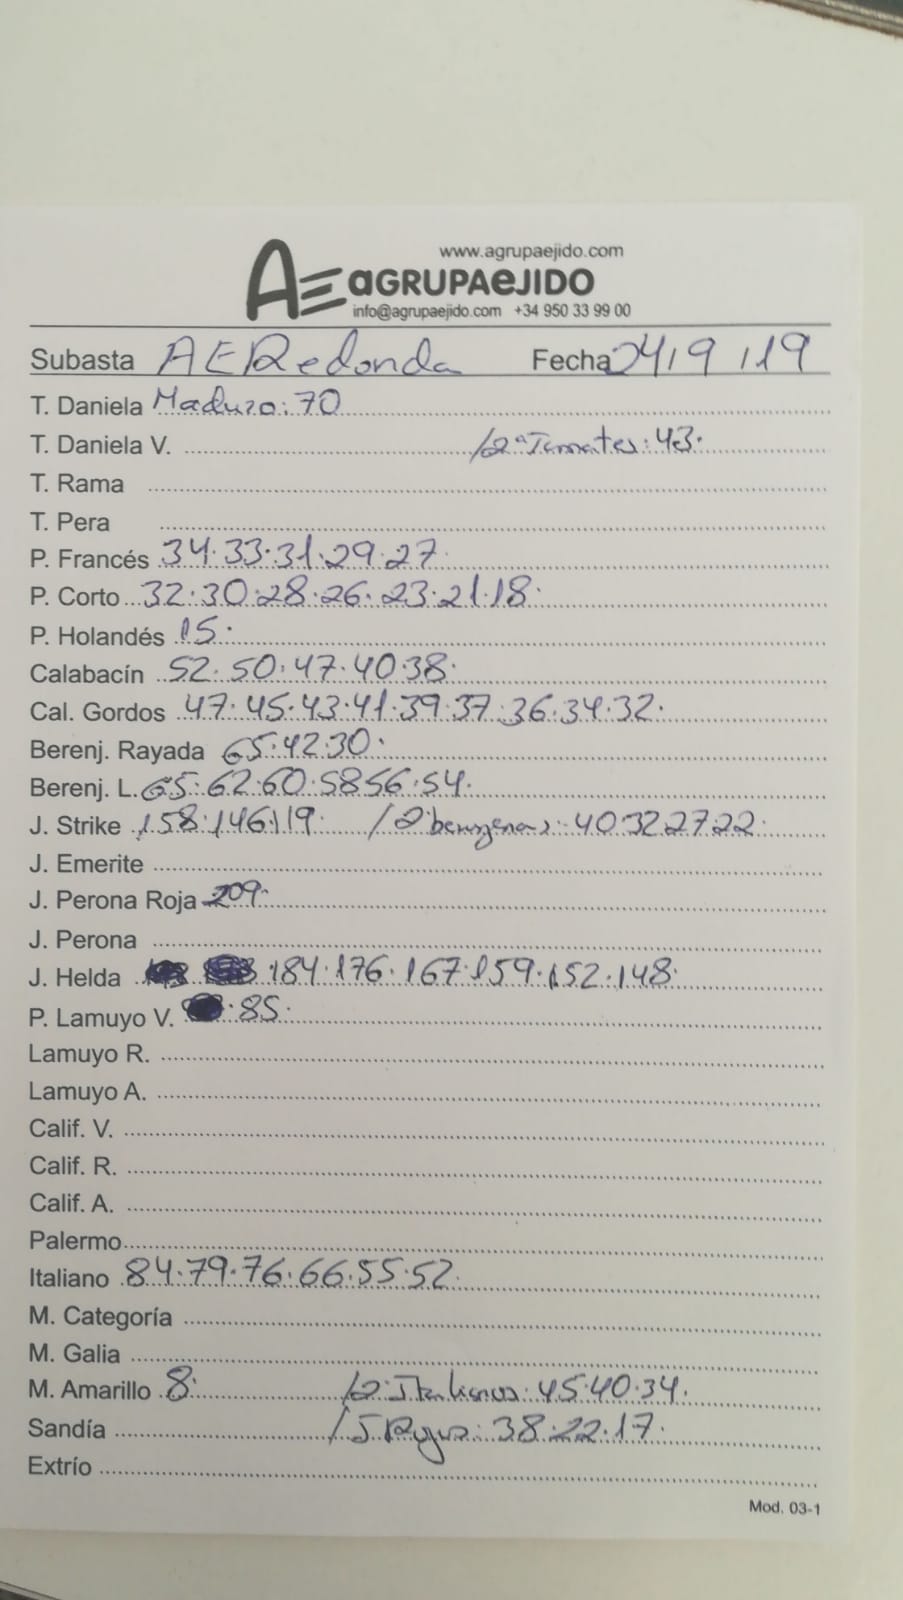 www.agrupaejido.com
AE aGRUPAeJIDO
info@agrupaejido.com +34 950 33 99 00
Subasta AERedonda Fecha 24/9/19
T. Daniela Maduro: 70
T. Daniela V. /2ª Tomates: 43.
T. Rama
T. Pera
P. Francés 34.33.31.29.27.
P. Corto 32.30.28.26.23.21.18.
P. Holandés 15.
Calabacín 52.50.47.40.38.
Cal. Gordos 47.45.43.41.39.37.36.34.32.
Berenj. Rayada 65.42.30.
Berenj. L. 65.62.60.58 56.54.
J. Strike 158.146.119. /2ª berengenas: 40 32 27 22.
J. Emerite
J. Perona Roja 209.
J. Perona
J. Helda 184.176.167.159.152.148.
P. Lamuyo V. .85.
Lamuyo R.
Lamuyo A.
Calif. V.
Calif. R.
Calif. A.
Palermo
Italiano 84.79.76.66.55.52.
M. Categoría
M. Galia
M. Amarillo 8. /2ª Italianos: 45.40.34.
Sandía / J Rojos: 38.22.17.
Extrío
Mod. 03-1